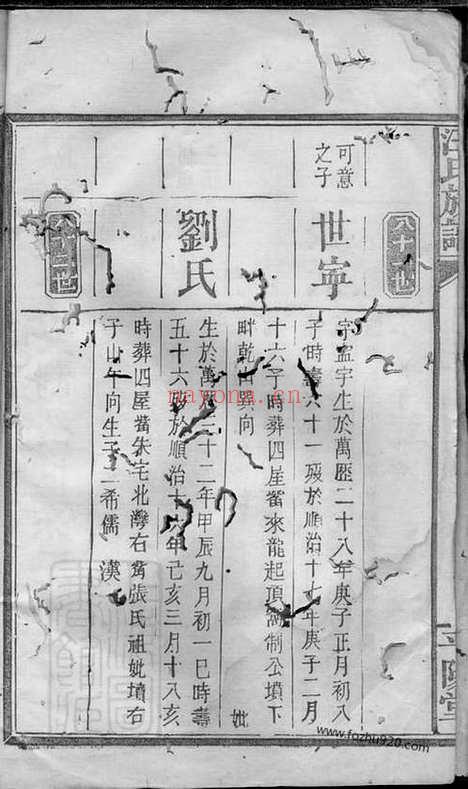 汪氏族譜
八十世
可意之子
世寧
字孟宇生於萬歷二十八年庚子正月初八
子時壽六十一歿於順治十七年庚子二月
十六子時葬四屋嘴來龍起頂制公墳下
畔乾山巽向
妣
劉氏
生於萬歷三十二年甲辰九月初一巳時壽
五十六歿於順治十六年己亥三月十八亥
時葬四屋嘴朱宅北灣右角張氏祖妣墳右
子山午向生子二希儒 漢
世
nayona.cn
www.fozhu920.com